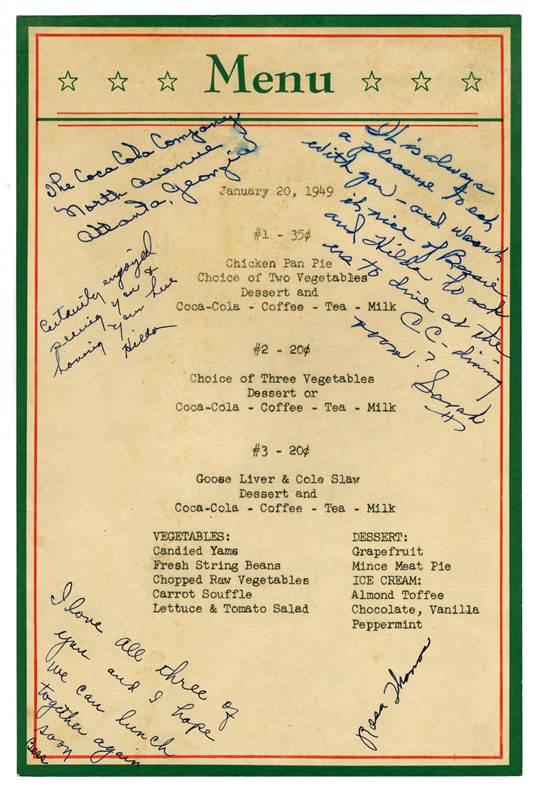 Menu
The Coca Cola Company
North Avenue
Atlanta, Georgia
It is always
a pleasure to eat
with you - and wasn't
it nice of Bessie
and Hilda to ask
us to dine at the
C C - dining
room? Sarah
January 20, 1949
Certainly enjoyed
seeing you &
having you here
Hilda
#1 - 35¢
Chicken Pan Pie
Choice of Two Vegetables
Dessert and
Coca-Cola - Coffee - Tea - Milk
#2 - 20¢
Choice of Three Vegetables
Dessert or
Coca-Cola - Coffee - Tea - Milk
#3 - 20¢
Goose Liver & Cole Slaw
Dessert and
Coca-Cola - Coffee - Tea - Milk
VEGETABLES:
Candied Yams
Fresh String Beans
Chopped Raw Vegetables
Carrot Souffle
Lettuce & Tomato Salad
DESSERT:
Grapefruit
Mince Meat Pie
ICE CREAM:
Almond Toffee
Chocolate, Vanilla
Peppermint
I love all three of
you and I hope
we can lunch
together again
soon
Bess
Rosa Thomas